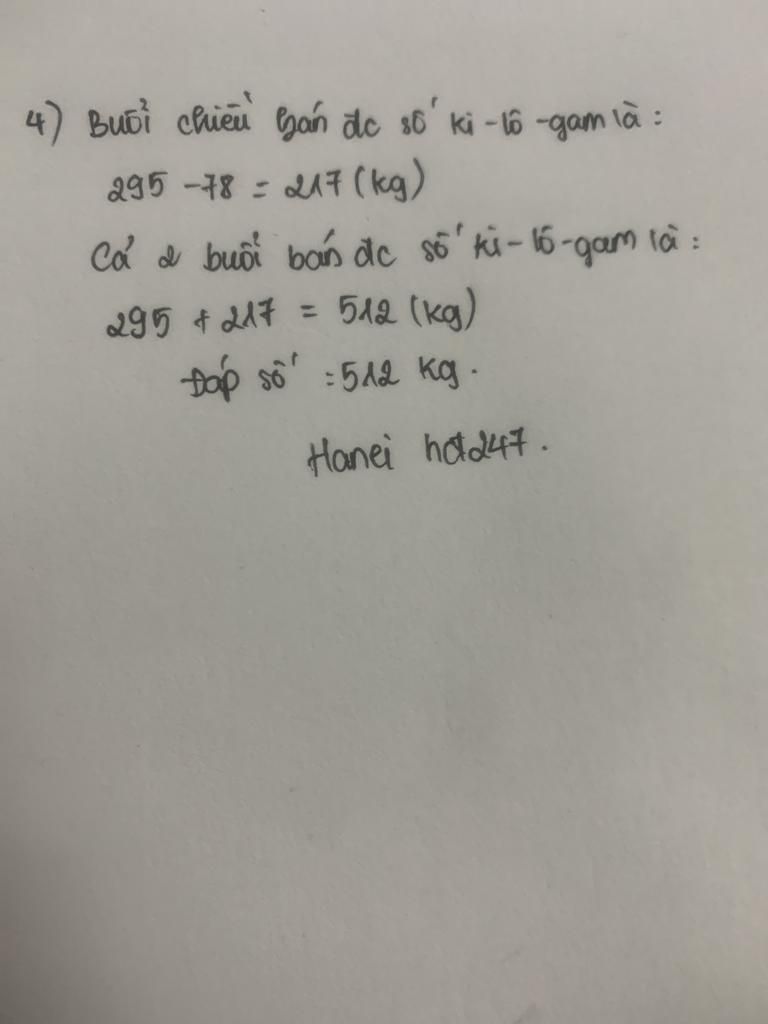 4) Buổi chiều bán đc số ki-lô-gam là:
295 - 78 = 217 (kg)
Cả 2 buổi bán đc số ki-lô-gam là:
295 + 217 = 512 (kg)
Đáp số : 512 kg.
Hanei hd247.